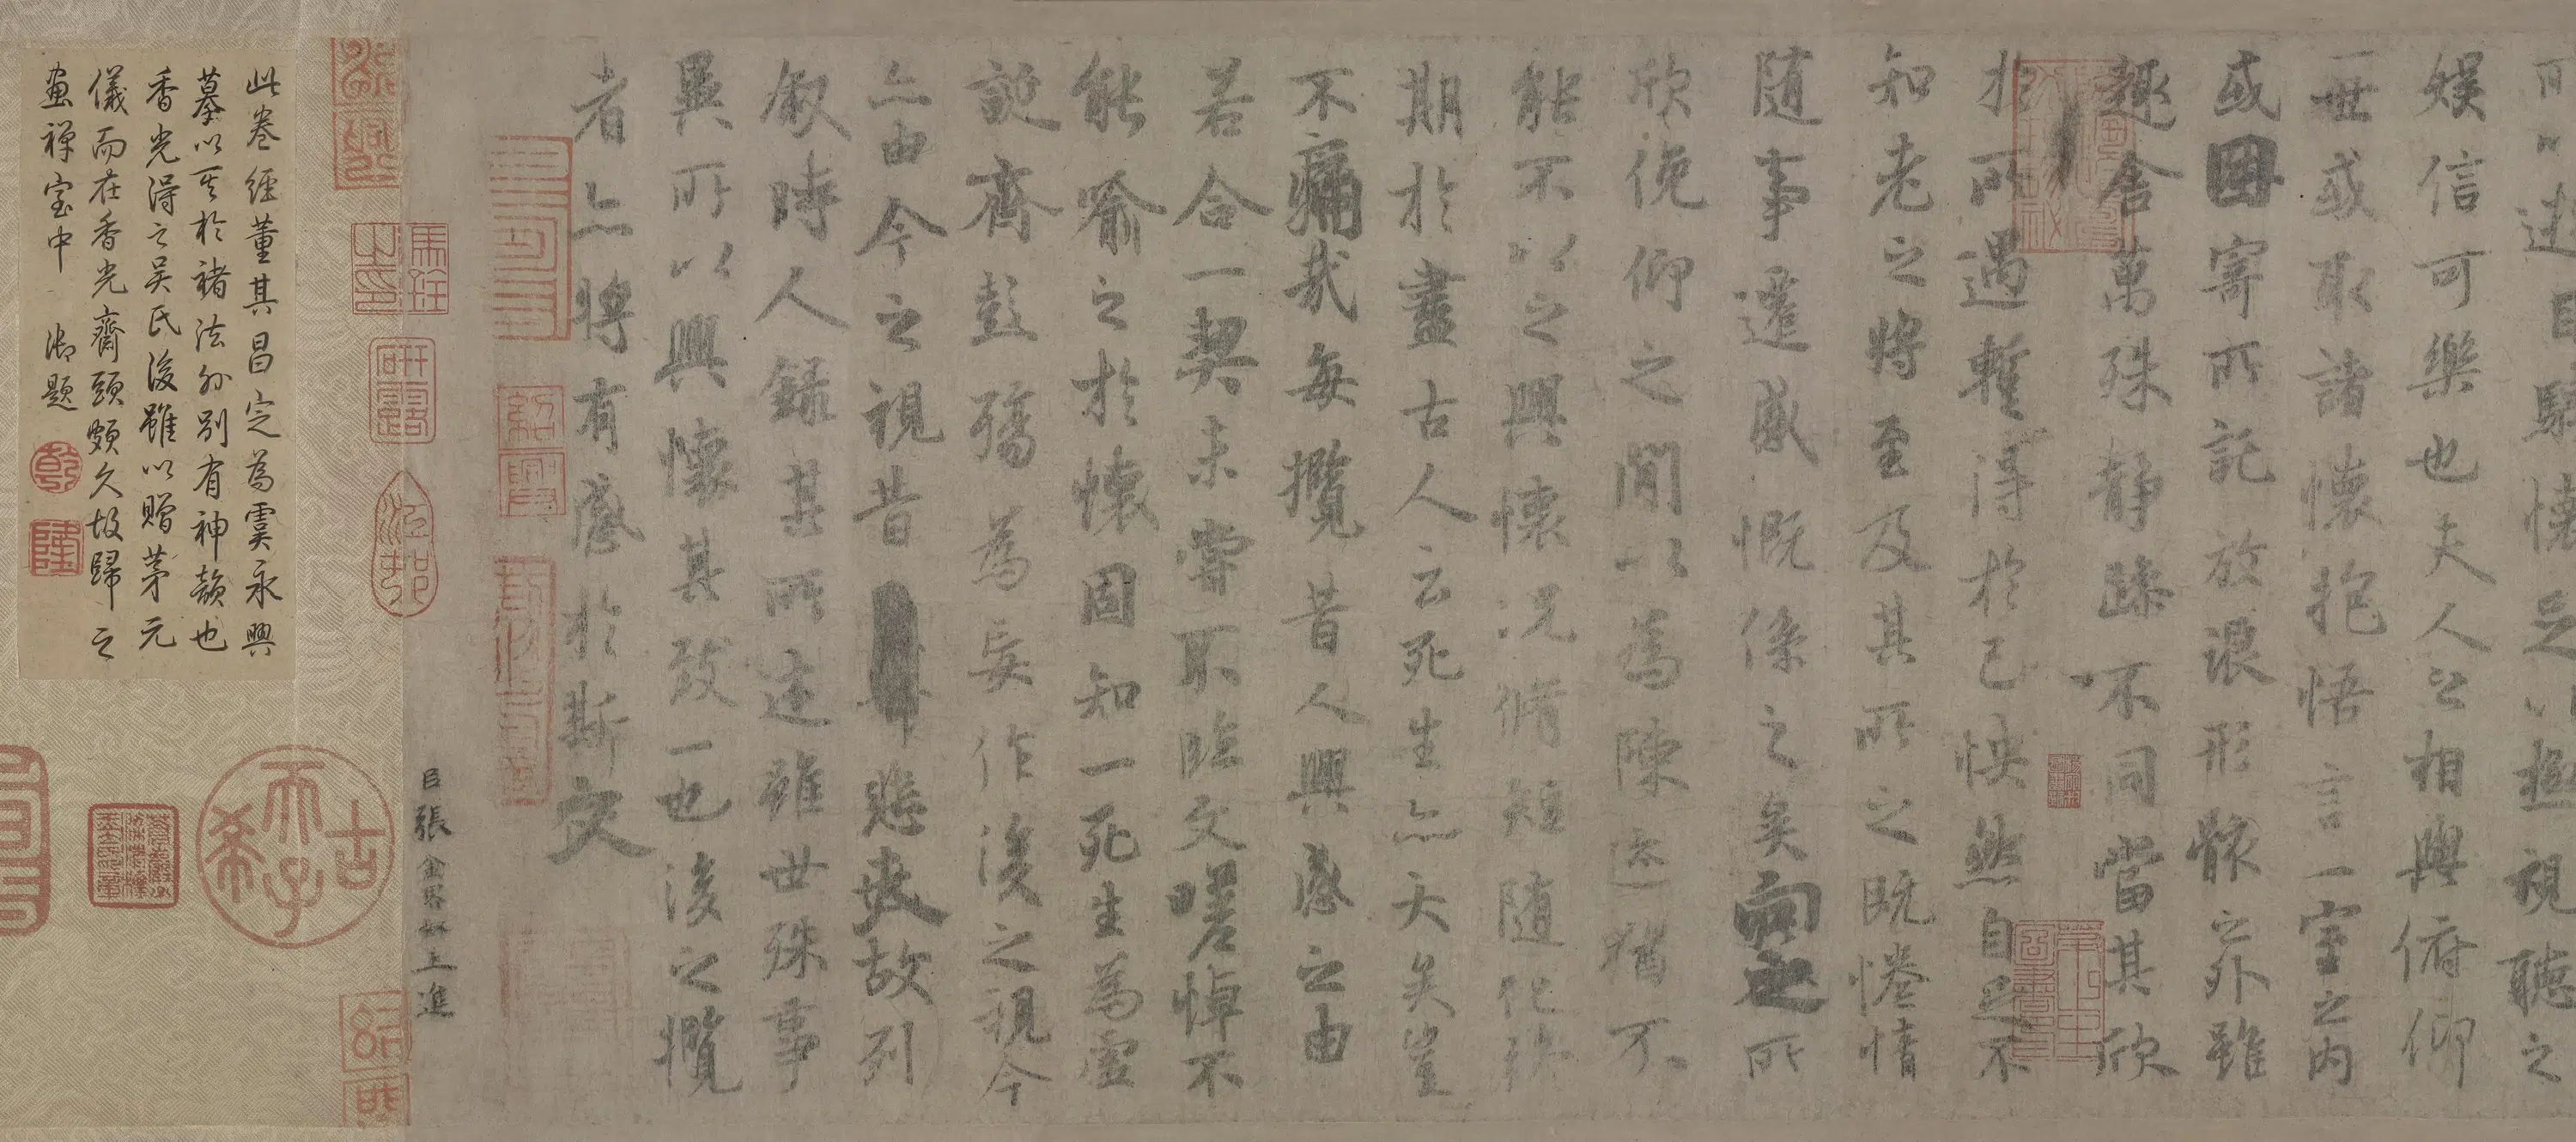 娛信可樂也夫人之相與俯仰
一世或取諸懷抱悟言一室之內
或因寄所託放浪形骸之外雖
趣舍萬殊靜躁不同當其欣
於所遇暫得於己怏然自足不
知老之將至及其所之既惓情
隨事遷感慨係之矣向之所
欣俛仰之間以為陳迹猶不
能不以之興懷況脩短隨化終
期於盡古人云死生亦大矣豈
不痛哉每攬昔人興感之由
若合一契未嘗不臨文嗟悼不
能喻之於懷固知一死生為虛
誕齊彭殤為妄作後之視今
亦由今之視昔悲夫故列
敘時人錄其所述雖世殊事
異所以興懷其致一也後之攬
者亦將有感於斯文
臣張金界奴上進
此卷經董其昌定為虞永興
摹以其於褚法外別有神韻也
香光得之吳氏後雖以贈茅元
儀而在香光齋頭頗久故歸之
畫禪室中 御題
乾
隆
古希天子